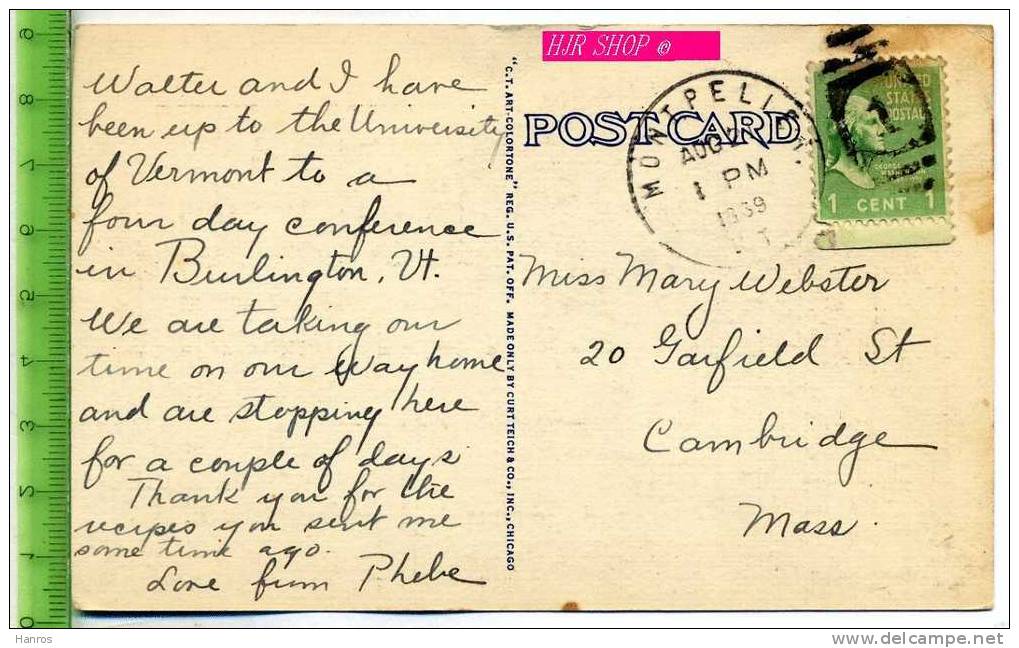 HJR SHOP ©
Walter and I have
been up to the University
of Vermont to a
four day conference
in Burlington, Vt.
We are taking our
time on our way home
and are stopping here
for a couple of days
Thank you for the
recipes you sent me
some time ago.
Love from Phebe
"C.T. ART-COLORTONE" REG. U.S. PAT. OFF. MADE ONLY BY CURT TEICH & CO., INC., CHICAGO
POST CARD
MONTPELIER
AUG
1 PM
1939
UNITED
STATES
POSTAGE
1 CENT 1
Miss Mary Webster
20 Garfield St
Cambridge
Mass.
9
8
7
6
5
4
3
2
1
0
Hanros
www.delcampe.net